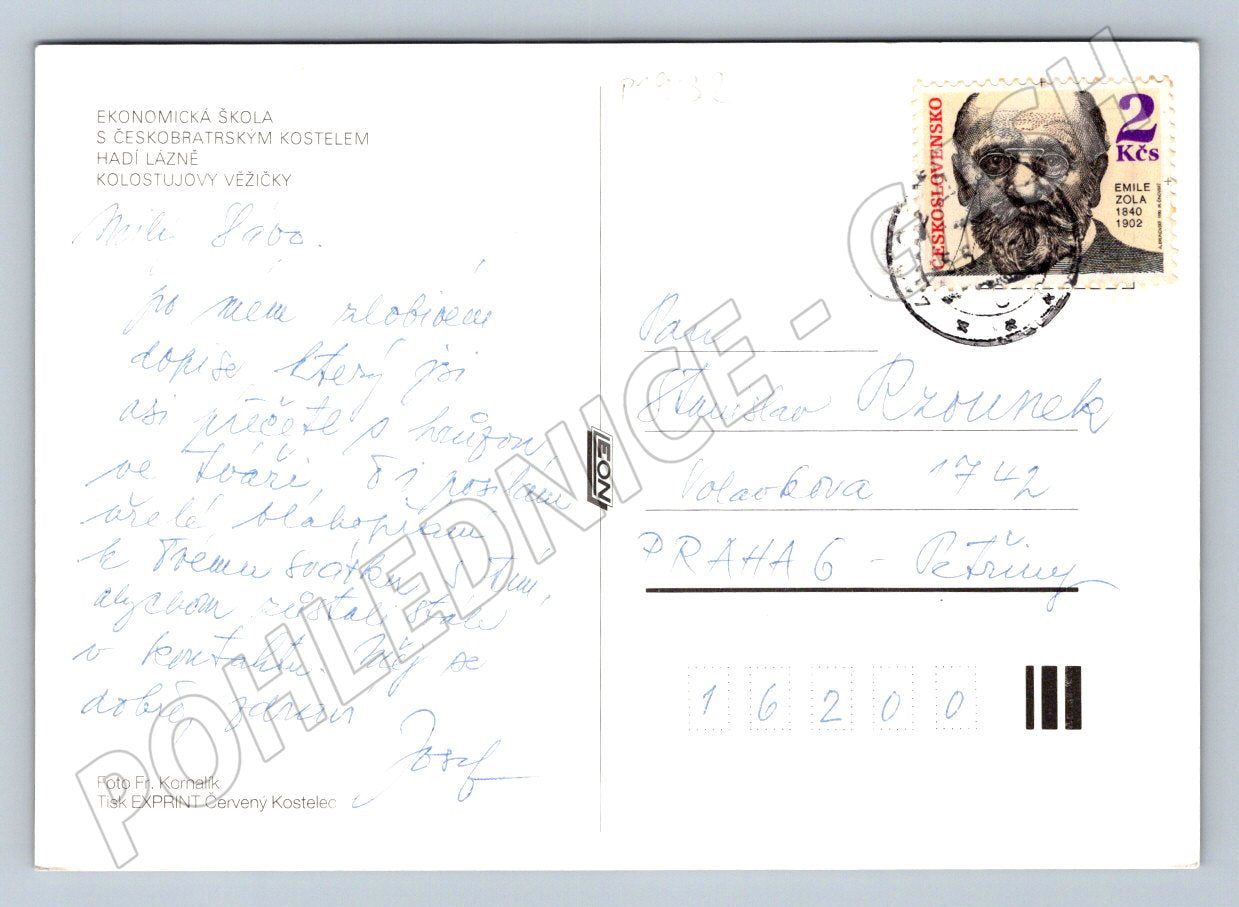 EKONOMICKÁ ŠKOLA
S ČESKOBRATRSKÝM KOSTELEM
HADÍ LÁZNĚ
KOLOSTUJOVY VĚŽIČKY
Milý Slávo.
po mém zlobivém
dopise který jsi
asi přečetl s hrůzou
ve tváři, Ti posílám
vřelé blahopřání
k Tvému svátku s tím,
abychom zůstali stále
v kontaktu. Měj se
dobře, zdraví
Josef
Foto Fr. Kornalík
Tisk EXPRINT Červený Kostelec
LEON
ČESKOSLOVENSKO
2
Kčs
EMILE
ZOLA
1840
1902
Pan
Stanislav Rzounek
Volavkova 1742
PRAHA 6 - Petřiny
16200
POHLEDNICE - CASH